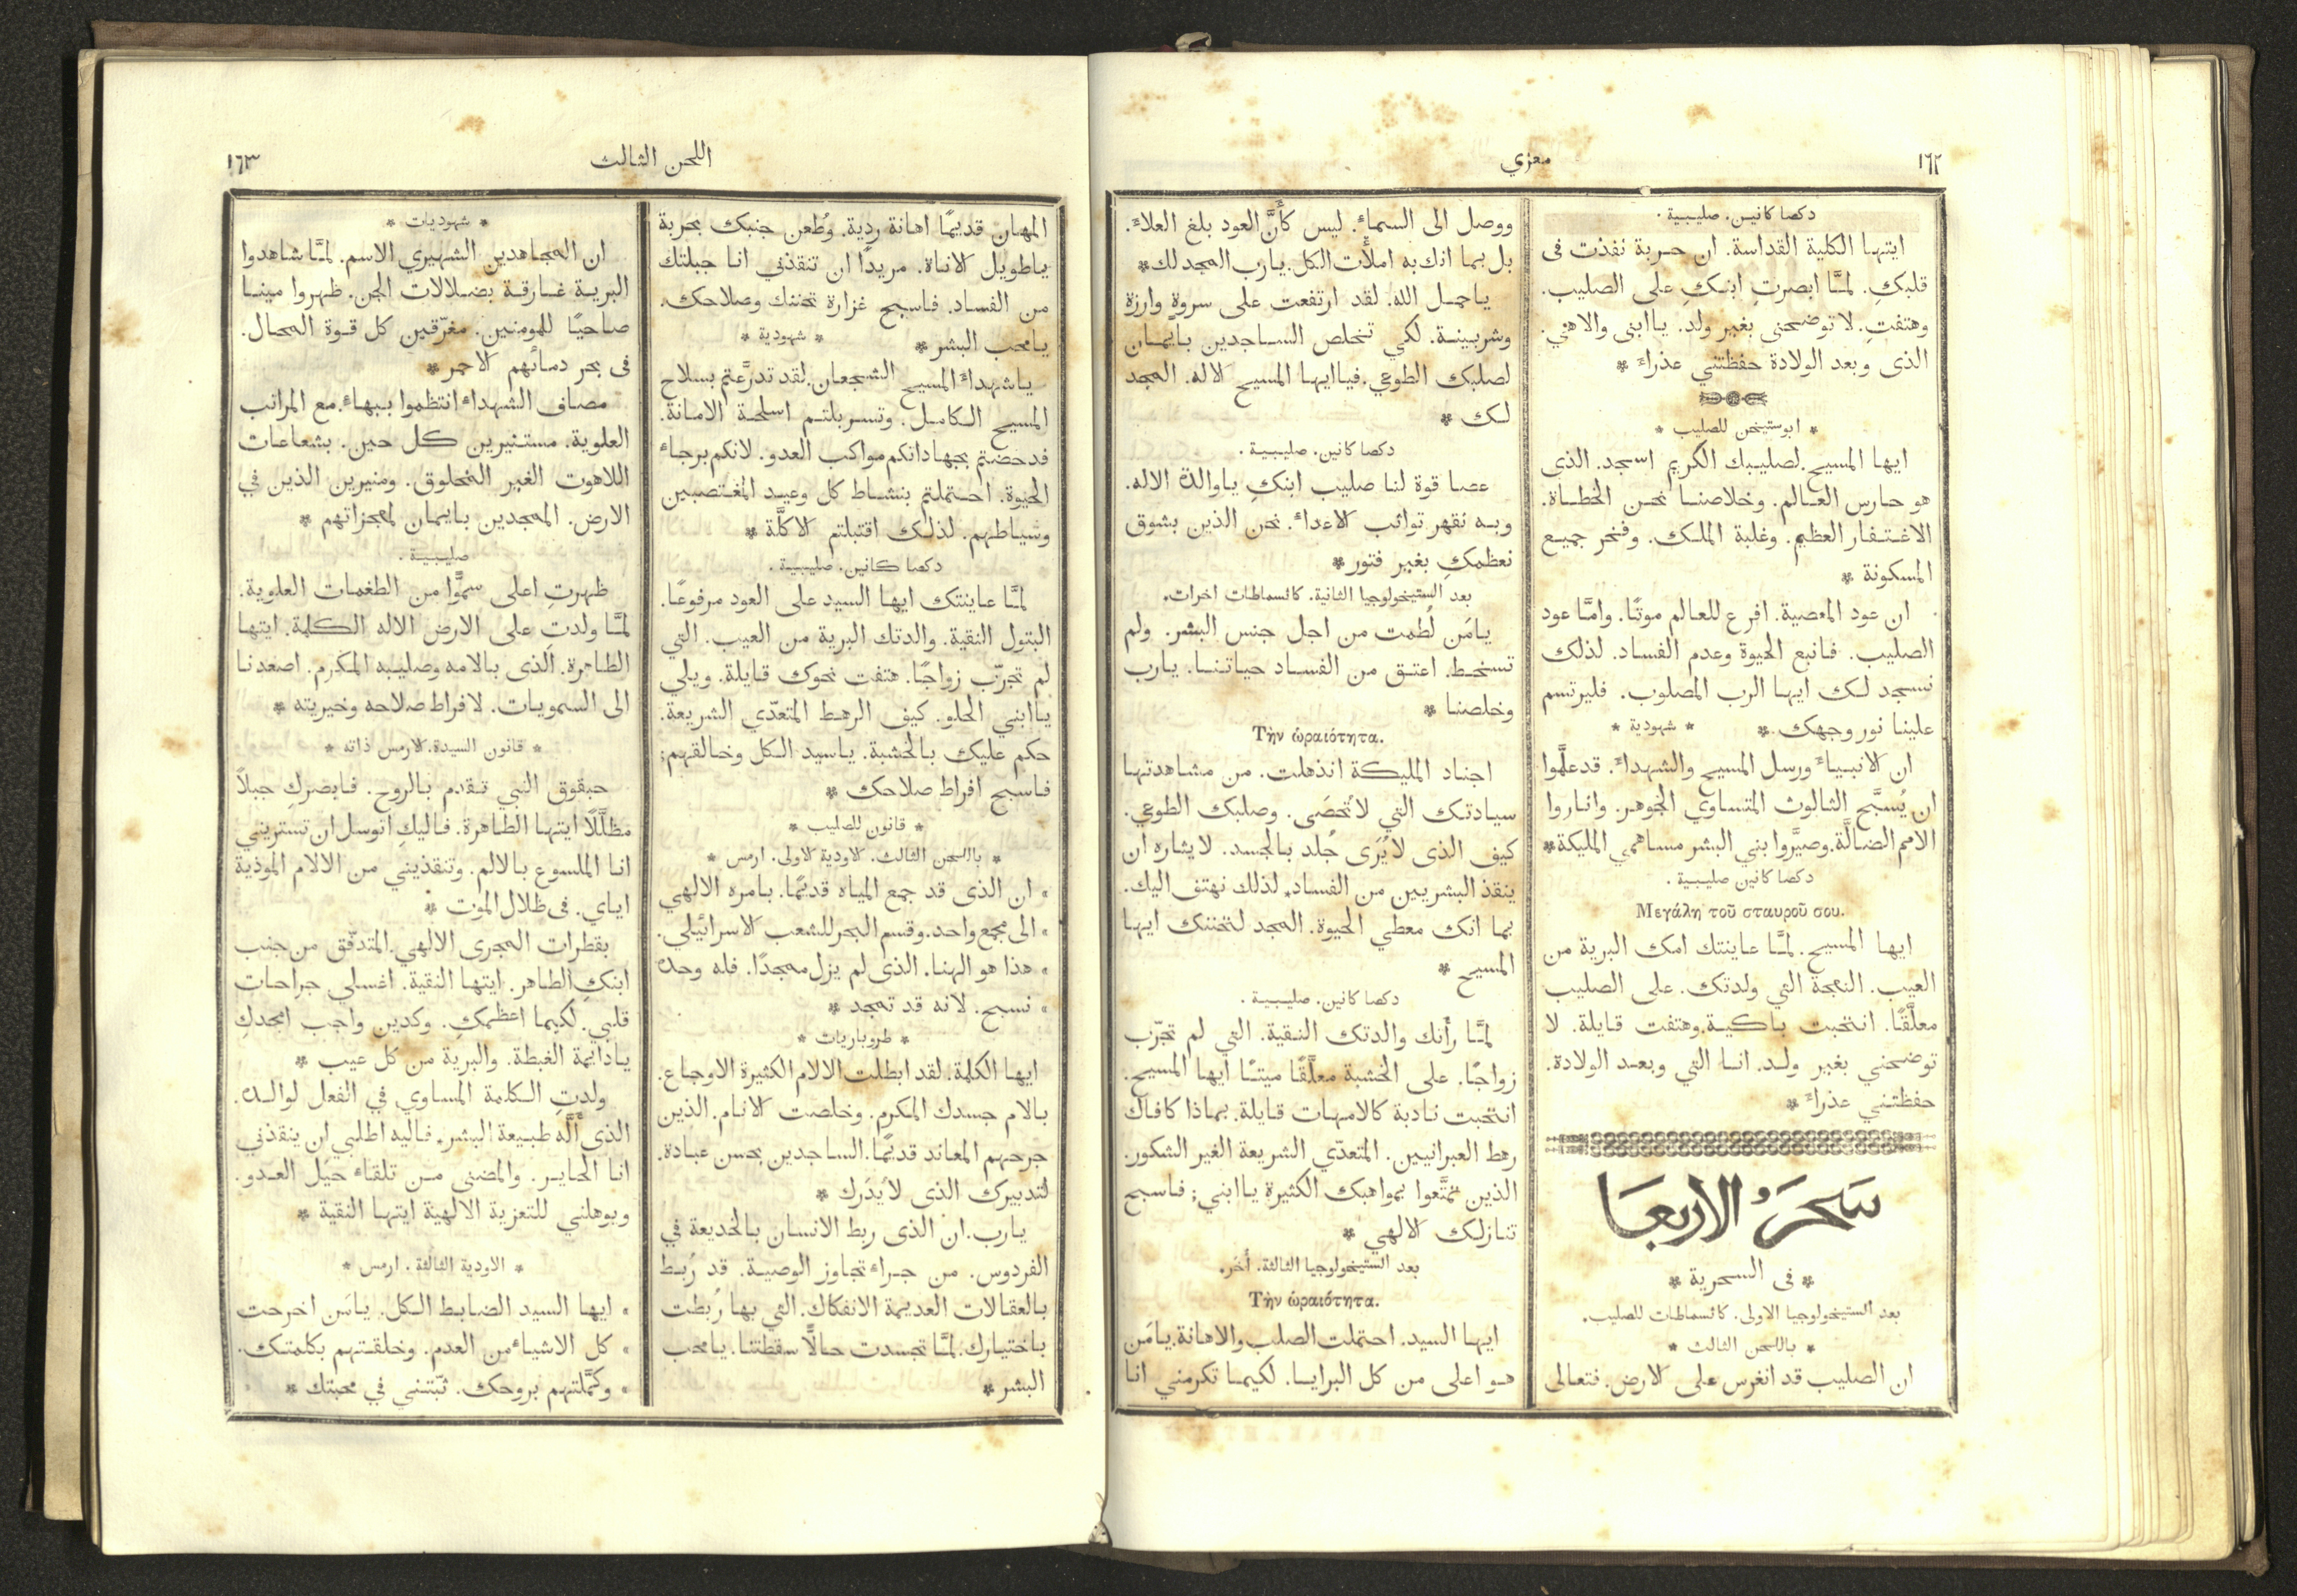 ١٦٢
معزي
دكصا كانين. صليبية .
ايتها الكلية القداسة. ان حربة نفذت فى
قلبكِ. لمَّا ابصرتِ ابنكِ على الصليب.
وهتفتِ. لا توضحنى بغير ولد. يا ابنى والاهي.
الذى وبعد الولادة حفظتني عذراء *
* ابوستيخن للصليب *
ايها المسيح. لصليبك الكريم اسجد. الذى
هو حارس العالم. وخلاصنا نحن الخطاة.
الاغتفار العظيم. وغلبة الملك. وفخر جميع
المسكونة *
ان عود المعصية. افرع للعالم موتًا. وامَّا عود
الصليب. فانبع الحيوة وعدم الفساد. لذلك
نسجد لك ايها الرب المصلوب. فليرتسم
علينا نور وجهك * * شهودية *
ان الانبياء ورسل المسيح والشهداء. قد علَّموا
ان يُسبَّح الثالوث المتساوي الجوهر. واناروا
الامم الضالَّة. وصيَّروا بني البشر مساهمي المليكة*
دكصا كانين صليبية .
Μεγάλη τοῦ σταυροῦ σου.
ايها المسيح. لمَّا عاينتك امك البرية من
العيب. النعجة التي ولدتك. على الصليب
معلَّقًا. انتحبت باكية. وهتفت قايلة. لا
توضحني بغير ولد. انا التي وبعد الولادة.
حفظتني عذراء *
سَحَرُ الاربعَا
* فى السحرية *
بعد الستيخولوجيا الاولى. كاثسماطات للصليب.
* باللحن الثالث *
ان الصليب قد انغرس على الارض. فتعالى
ووصل الى السماء. ليس كأَنَّ العود بلغ العلاء.
بل بما انك به املأت الكل. يارب المجد لك*
ياحمل الله. لقد ارتفعت على سروةٍ وارزة
وشربينة. لكي تخلص الساجدين بايمان
لصلبك الطوعي. فيا ايها المسيح الاله. المجد
لك *
دكصا كانين. صليبية .
عصا قوة لنا صليب ابنكِ ياوالدة الاله.
وبه نقهر تواثب الاعداء. نحن الذين بشوق
نعظمكِ بغير فتور*
بعد الستيخولوجيا الثانية. كاثسماطات اخرات.
يامَن لُطمت من اجل جنس البشر. ولم
تسخط. اعتق من الفساد حياتنا. يارب
وخلصنا *
Τὴν ὡραιότητα.
اجناد المليكة انذهلت. من مشاهدتها
سيادتك التي لا تُحصَى. وصلبك الطوعي.
كيف الذى لا يُرَى جُلد بالجسد. لايشاره ان
ينقذ البشريين من الفساد. لذلك نهتف اليك.
بما انك معطي الحيوة. المجد لتحننك ايها
المسيح *
دكصا كانين. صليبية .
لمَّا رأَتك والدتك النقية. التي لم تجرّب
زواجًا. على الخشبة معلَّقًا ميتًا ايها المسيح.
انتحبت نادبة كالامهات قايلة. بماذا كافاك
رهط العبرانيين. المتعدّي الشريعة الغير الشكور.
الذين تمتَّعوا بمواهبك الكثيرة يا ابني; فاسبح
تنازلك الالهي *
بعد الستيخولوجيا الثالثة. أُخَر.
Τὴν ὡραιότητα.
ايها السيد. احتملت الصلب والاهانة. يامَن
هو اعلى من كل البرايا. لكيما تكرمني انا
اللحن الثالث
١٦٣
المهان قديمًا اهانة ردية. وطُعن جنبك بحربة
ياطويل الاناة. مريدًا ان تنقذني انا جبلتك
من الفساد. فاسبح غزارة تحننك وصلاحك.
يامحب البشر * * شهودية *
ياشهداء المسيح الشجعان. لقد تدرَّعتم بسلاح
المسيح الكامل. وتسربلتم اسلحة الامانة.
فدحضتم بجهاداتكم مواكب العدو. لانكم برجاء
الحيوة. احتملتم بنشاط كل وعيد المغتصبين
وسياطهم. لذلك اقتبلتم الاكلَّة *
دكصا كانين. صليبية .
لمَّا عاينتك ايها السيد على العود مرفوعًا.
البتول النقية. والدتك البرية من العيب. التي
لم تجرّب زواجًا. هتفت نحوك قايلة. ويلي
يا ابني الحلو. كيف الرهط المتعدّي الشريعة.
حكم عليك بالخشبة. ياسيد الكل وخالقهم;
فاسبح افراط صلاحك *
* قانون للصليب *
* باللحن الثالث. الاودية الاولى. ارمس *
» ان الذى قد جمع المياه قديمًا. بامره الالهي
» الى مجمع واحد. وقسم البحر للشعب الاسرائيلي.
» هذا هو الهنا. الذى لم يزل ممجدًا. فله وحده
» نسبح. لانه قد تمجد *
* طروباريات *
ايها الكلمة. لقد ابطلت الالام الكثيرة الاوجاع.
بالام جسدك المكرم. وخلصت الانام. الذين
جرحهم المعاند قديمًا. الساجدين بحسن عبادة.
لتدبيرك الذى لا يُدرَك *
يارب. ان الذى ربط الانسان بالخديعة في
الفردوس. من جراء تجاوز الوصية. قد رُبط
بالعقالات العديمة الانفكاك. التي بها رُبطت
باختيارك. لمَّا تجسدت حالًّا سقطتنا. يامحب
البشر *
* شهوديات *
ان المجاهدين الشهيري الاسم. لمَّا شاهدوا
البرية غارقة بضلالات الجن. ظهروا مينا
صاحيًا للمومنين. مغرّقين كل قوة المحال.
فى بحر دمائهم الاحمر *
مصاف الشهداء انتظموا ببهاء. مع المراتب
العلوية. مستنيرين كل حين. بشعاعات
اللاهوت الغير المخلوق. ومنيرين الذين في
الارض. الممجدين بايمان لمعجزاتهم *
صليبية .
ظهرتِ اعلى سموًّا من الطغمات العلوية.
لمَّا ولدتِ على الارض الاله الكلمة. ايتها
الطاهرة. الذى بالامه وصليبه المكرم. اصعدنا
الى السمويات. لافراط صلاحه وخيريته *
* قانون السيدة. الارمس ذاته *
حبقوق النبي تقدم بالروح. فابصركِ جبلاً
مظلَّلًا ايتها الطاهرة. فاليكِ اتوسل ان تستريني
انا الملسوع بالالم. وتنقذيني من الالام الموذية
اياي. فى ظلال الموت *
بقطرات المجرى الالهي. المتدفّق من جنب
ابنكِ الطاهر. ايتها النقية. اغسلي جراحات
قلبي. لكيما اعظمكِ. وكدين واجب امجدكِ
يادايمة الغبطة. والبرية من كل عيب *
ولدتِ الكلمة المساوي في الفعل لوالده.
الذى أَلَّه طبيعة البشر. فاليه اطلبي ان ينقذني
انا الحاير. والمضنى من تلقاء حيَل العدو.
ويوهلني للتعزية الالهية ايتها النقية *
* الاودية الثالثة. ارمس *
» ايها السيد الضابط الكل. يامَن اخرجت
» كل الاشياء من العدم. وخلقتهم بكلمتك.
» وكمَّلتهم بروحك. ثبّتني في محبتك *